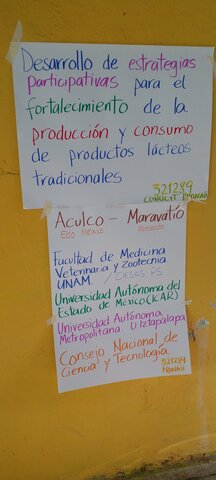 Desarrollo de estrategias
participativas para el
fortalecimiento de la
producción y consumo
de productos lácteos
tradicionales
321289
CONACYT PRONAII
Aculco - Maravatío
Edo. México Michoacán
Facultad de Medicina
Veterinaria y Zootecnia.
UNAM. / CIESAS PS
Universidad Autónoma del
Estado de México (ICAR)
Universidad Autónoma
Metropolitana. U. Iztapalapa
Consejo Nacional de
Ciencia y Tecnología.
321289
PRONAII